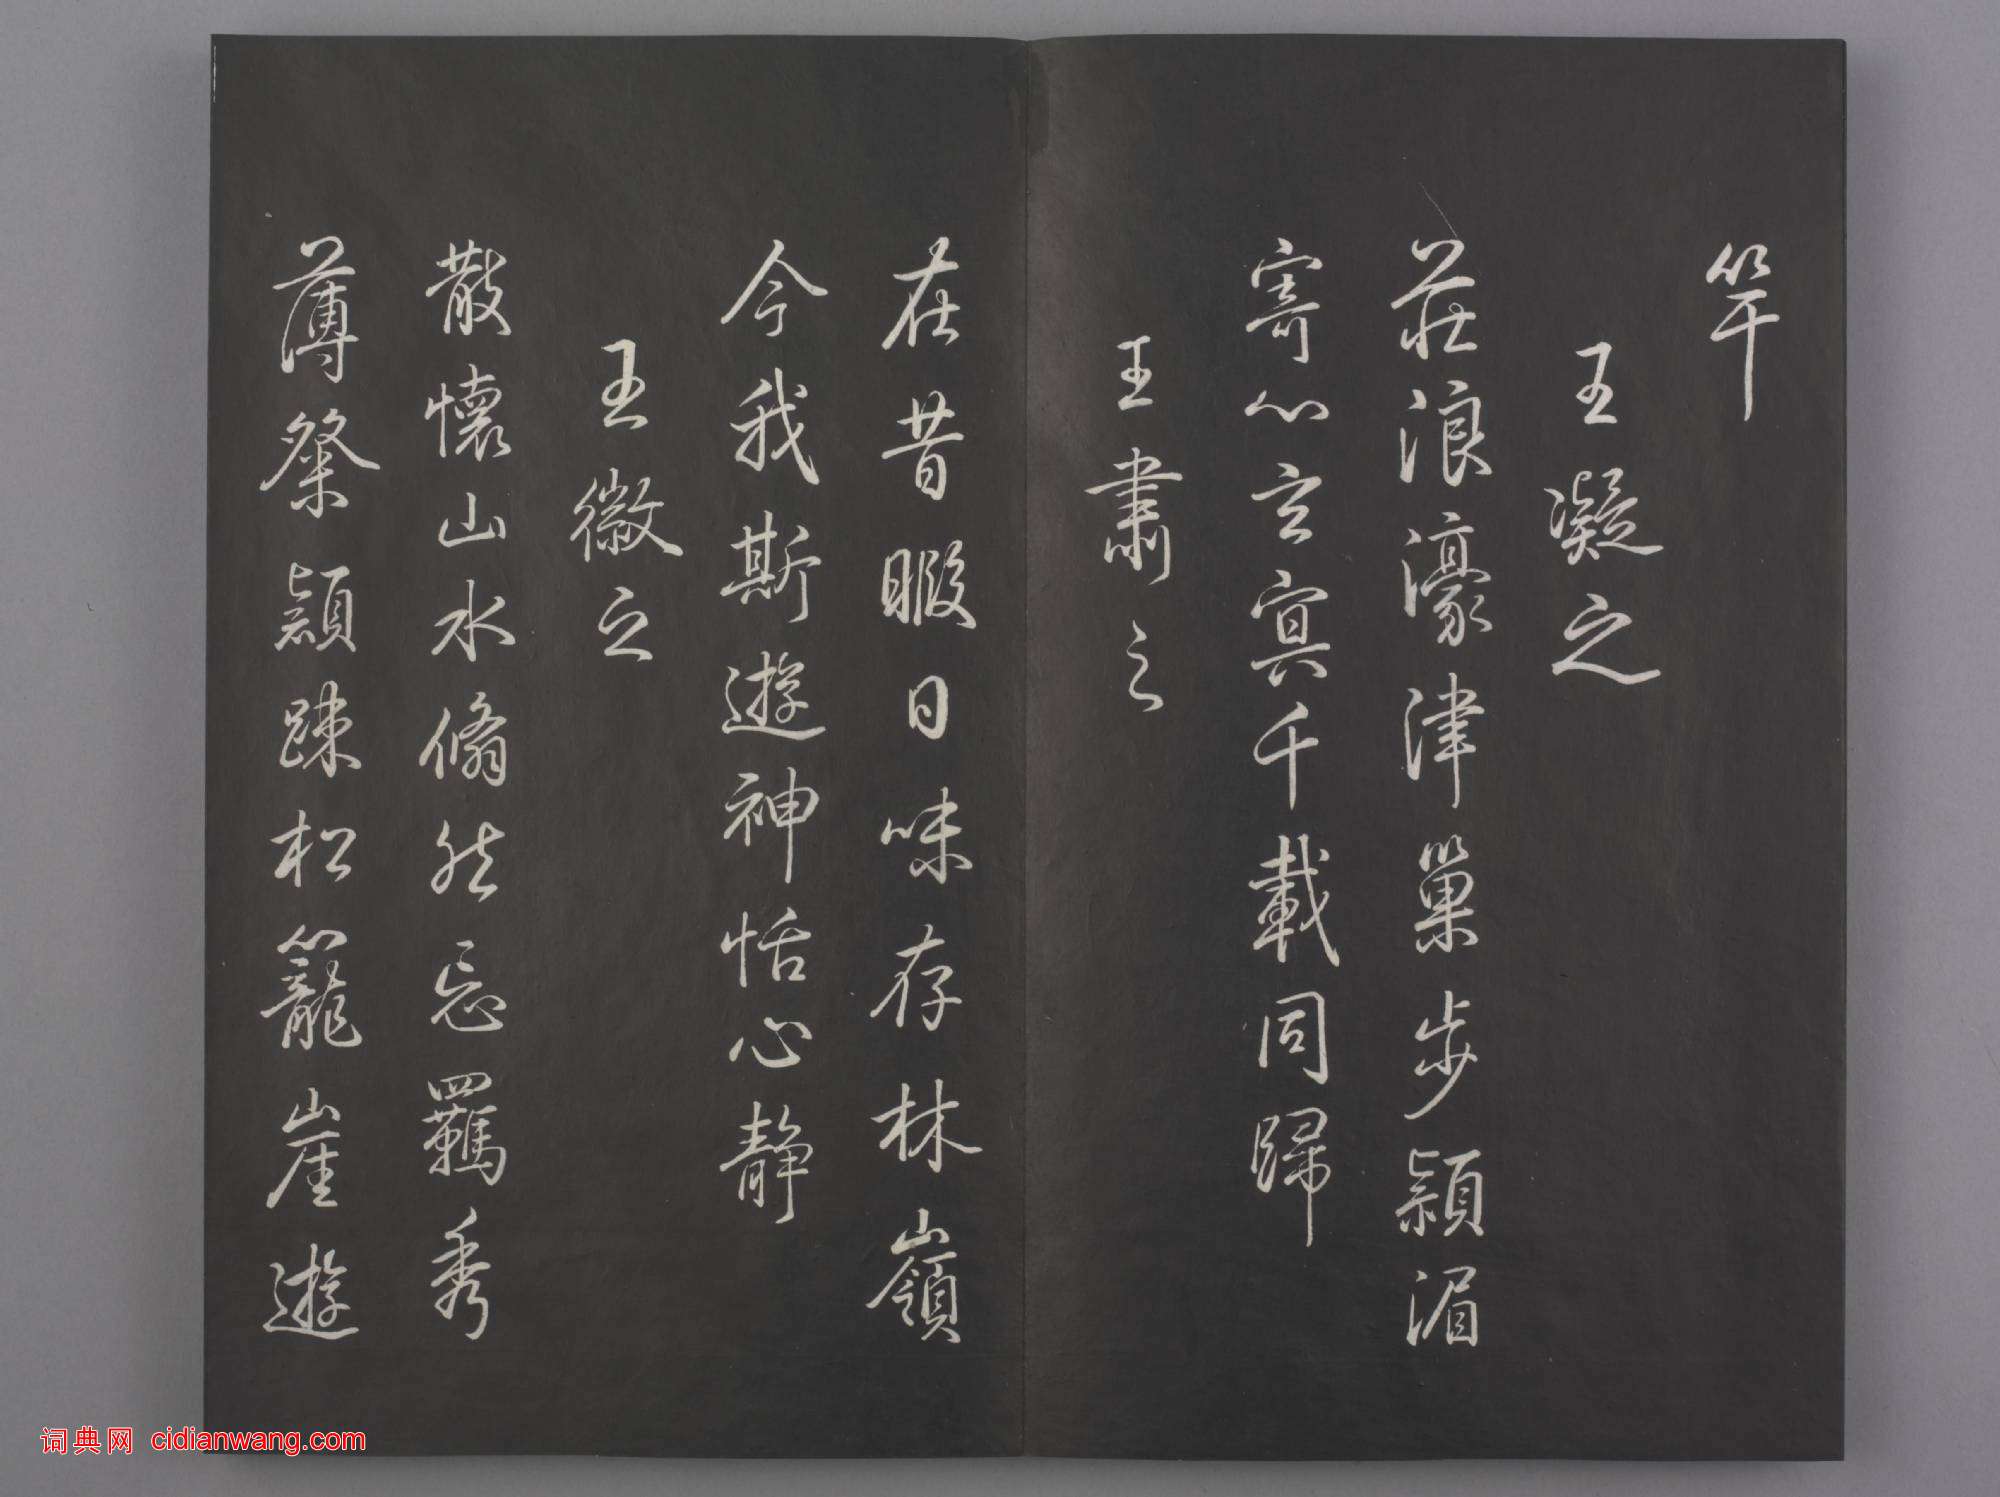 竿
王凝之
莊浪濠津巢步潁湄
寄心玄冥千載同歸
王肅之
在昔暇日味存林嶺
今我斯遊神恬心静
王徽之
散懷山水翛然忘羈秀
薄粲穎踈松籠崖遊
词典网 cidianwang.com